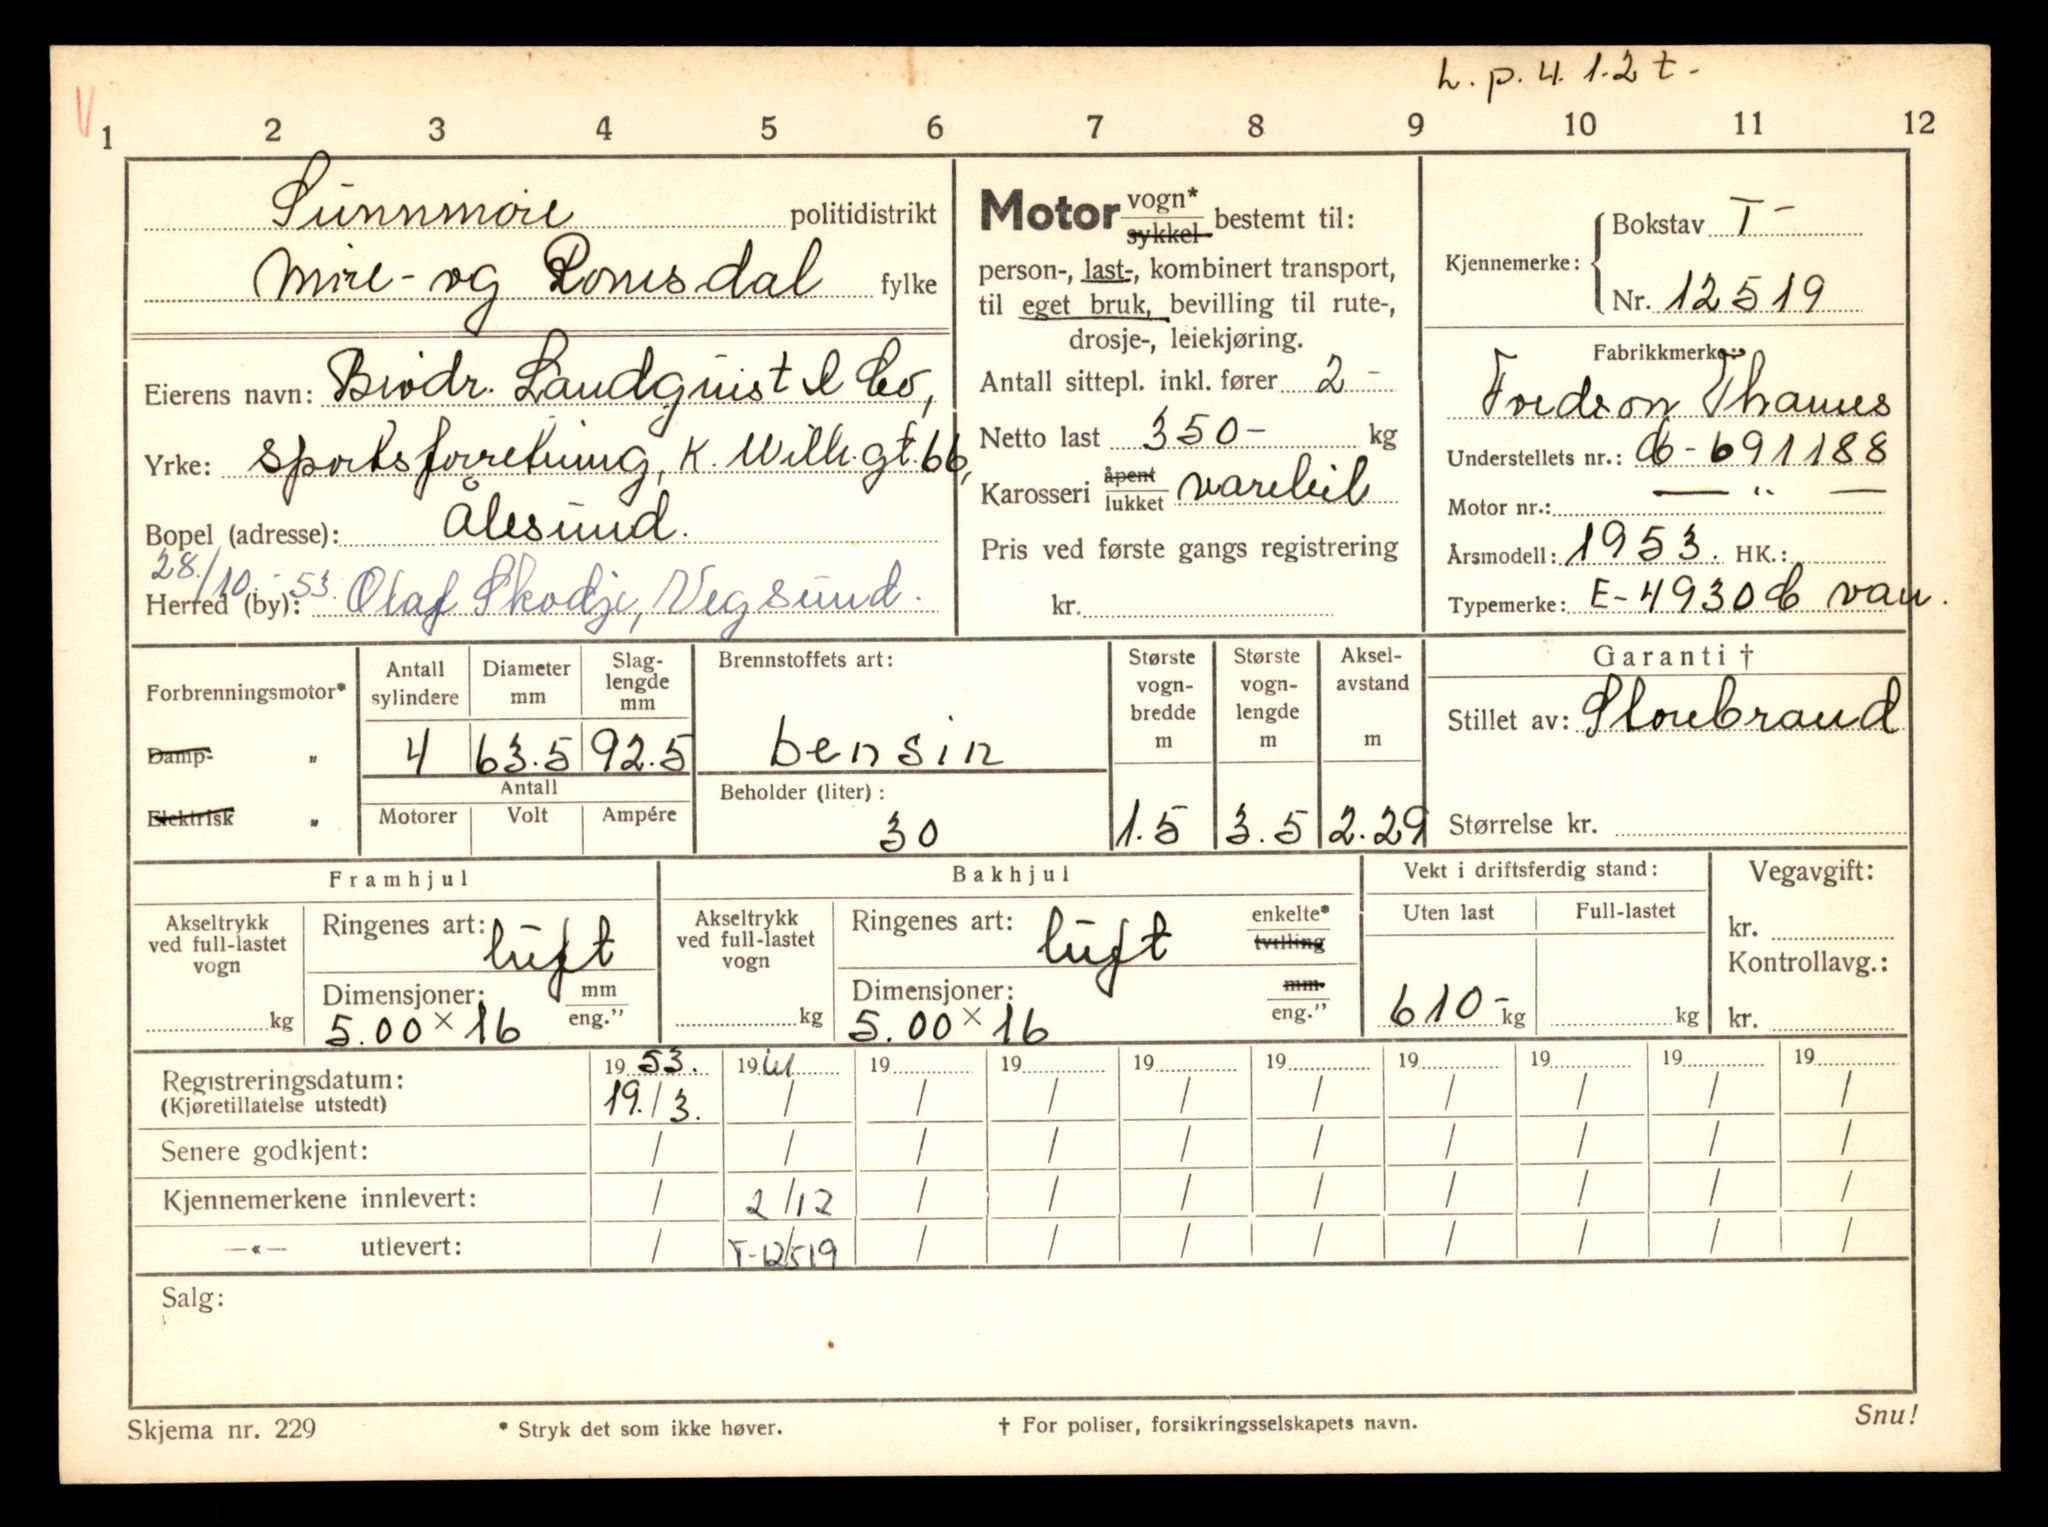 L. p. 4. 1.2 t -
V
1 2 3 4 5 6 7 8 9 10 11 12
Sunnmøre politidistrikt
Møre- og Romsdal fylke
Eierens navn: Brødr. Landquist & Co,
Yrke: sportsforretning, K. Wilh.gt. 66,
Bopel (adresse): Ålesund.
28./10. - 53
Herred (by): Olaf Skodje, Vegsund.
Motor vogn* sykkel bestemt til:
person-, last-, kombinert transport,
til eget bruk, bevilling til rute-,
drosje-, leiekjøring.
Antall sittepl. inkl. fører 2 -
Netto last 350- kg
Karosseri åpent lukket varebil
Pris ved første gangs registrering
kr.
Kjennemerke: Bokstav T-
Nr. 12519
Fabrikkmerke:
Fordson Thames
Understellets nr.: C-691188
Motor nr.: — " —
Årsmodell: 1953. HK.:
Typemerke: E-4930 C van.
Forbrenningsmotor*
Damp- "
Elektrisk "
Antall sylindere Diameter mm Slag-lengde mm
4 63.5 92.5
Antall
Motorer Volt Ampére
Brennstoffets art:
bensin
Beholder (liter):
30
Største vogn-bredde m Største vogn-lengde m Aksel-avstand m
1.5 3.5 2.29
Garanti †
Stillet av: Storebrand
Størrelse kr.
Framhjul
Akseltrykk ved full-lastet vogn
kg
Ringenes art: luft
Dimensjoner: mm eng."
5.00 × 16
Bakhjul
Akseltrykk ved full-lastet vogn
kg
Ringenes art: luft enkelte* tvilling
Dimensjoner: mm eng."
5.00 × 16
Vekt i driftsferdig stand:
Uten last Full-lastet
610- kg kg
Vegavgift:
kr.
Kontrollavg.:
kr.
Registreringsdatum: 19 53. 19 61 19 19 19 19 19 19 19 19
(Kjøretillatelse utstedt) 19./3. / / / / / / / / /
Senere godkjent: / / / / / / / / / /
Kjennemerkene innlevert: / 2/12 / / / / / / / /
—«— utlevert: / T-12519 / / / / / / / /
Salg:
Skjema nr. 229 * Stryk det som ikke høver. † For poliser, forsikringsselskapets navn. Snu!